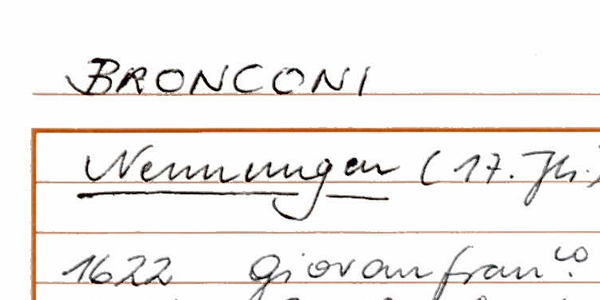 BRONCONI
Nennungen (17. Jh.)
1622 Giovanfran.co